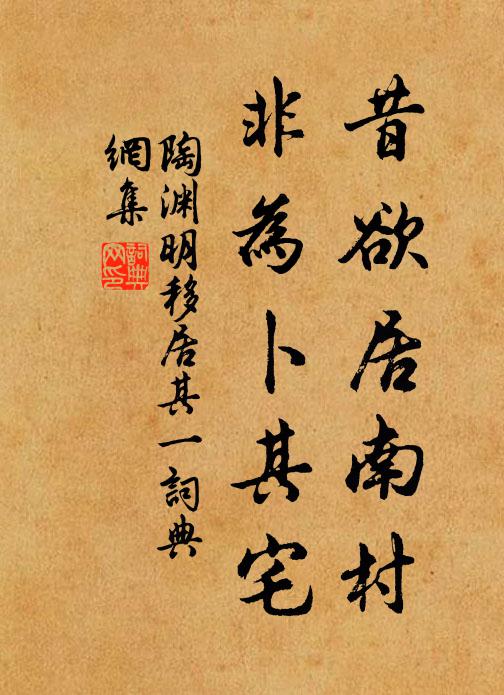 昔欲居南村
非為卜其宅
陶渊明移居其一詞典
網集
詞典網印